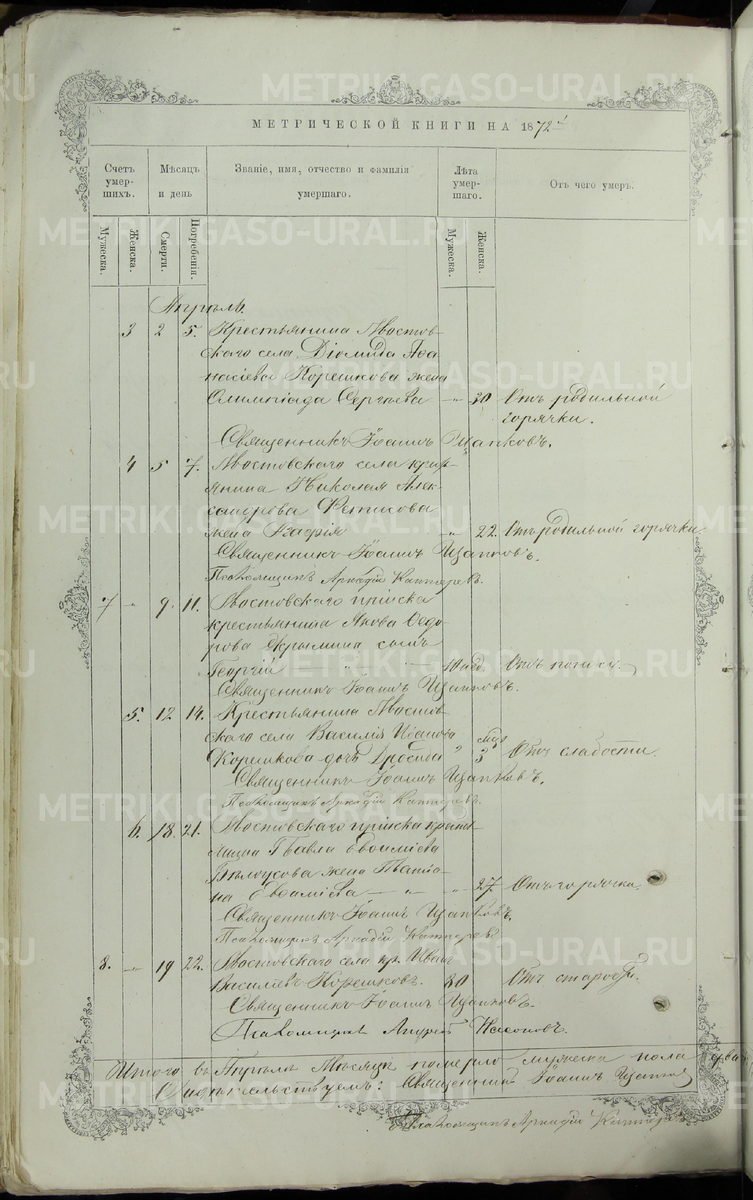 METRIKI.GASO-URAL.RU
МЕТРИЧЕСКОЙ КНИГИ НА 1872 г
Счетъ умер-шихъ. Мѣсяцъ и день Званіе, имя, отчество и фамилія умершаго. Лѣта умер-шаго. Отъ чего умеръ.
Мужеска. Женска. Смерти. Погребенія. Мужеска. Женска.
Апрѣль.
3 2 5. Крестьянина Мостов-
скаго села Діомида Аѳа-
насіева Корешкова жена
Олимпіада Сергѣева 30 Отъ родильной
горячки.
Священникъ Іоаннъ Цапковъ.
4 5 7. Мостовскаго села крест-
янина Николая Алек-
сандрова
жена 22. Отъ родильной горячки
Священникъ Іоаннъ Цапковъ.
Псаломщикъ Аркадій
7 9. 11. Мостовскаго пріиска
крестьянина Якова Ѳедо-
рова сынъ
Георгій 10 нед. Отъ
Священникъ Іоаннъ Цапковъ.
5. 12 14. Крестьянина Мостов-
скаго села Василія Иванова
Корешкова дочь 3 Отъ слабости
Священникъ Іоаннъ Цапковъ.
Псаломщикъ Аркадій
6. 18. 21. Мостовскаго пріиска
Павла
Бѣлоусова жена Татія-
на 27 Отъ горячки.
Священникъ Іоаннъ Цапковъ.
Псаломщикъ Аркадій
8. 19 22. Мостовскаго села кр. Иванъ
Василіевъ Корешковъ. 80 Отъ старости.
Священникъ Іоаннъ Цапковъ.
Псаломщикъ Андрей
Итого въ Апрѣлѣ Мѣсяцѣ померло мужеска пола два
Свидѣтельствуемъ: Священникъ Іоаннъ Цапковъ
Псаломщикъ Аркадій